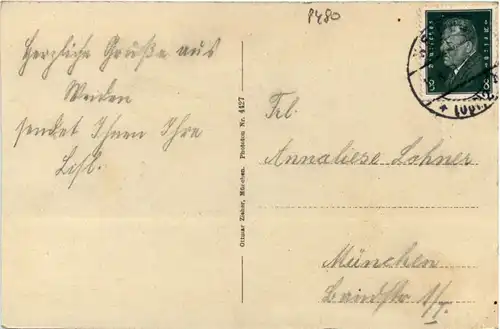 8480
Herzliche Grüße aus
Weiden
sendet Ihnen Ihre
Lisl.
Ottmar Zieher, München. Phototon Nr. 4427
Frl.
Annaliese Lahner
München
8 8